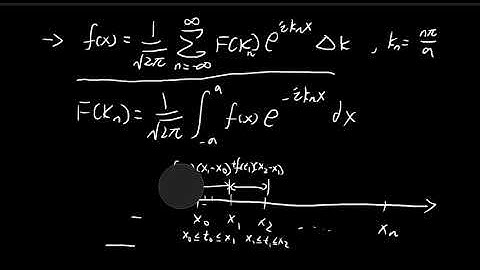 → f(x) = 1/√2π ∑_{n=-∞}^{∞} F(K_n) e^{ik_n x} Δk , k_n = nπ/a
F(K_n) = 1/√2π ∫_{-a}^{a} f(x) e^{-ik_n x} dx
(x_1-x_0) + f(t_1)(x_2-x_1)
x_0 x_1 x_2 x_n
x_0≤t_0≤x_1 x_1≤t_1≤x_2 ....